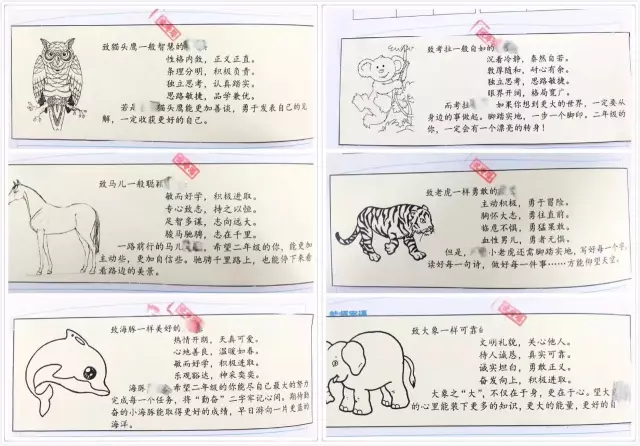 致猫头鹰一般智慧的
性格内敛，正义正直。
条理分明，积极负责。
独立思考，认真踏实。
思路敏捷，品学兼优。
若是 猫头鹰能更加善谈，勇于发表自己的见
解，一定收获更好的自己。
致考拉一般自如的
沉着冷静，泰然自若。
敦厚随和，耐心有余。
独立思考，思路敏捷。
眼界开阔，格局宽广。
而考拉 如果你想到更大的世界，一定要从
身边的事做起。脚踏实地，一步一个脚印，二年级的
你，一定会有一个漂亮的转身！
致马儿一般聪
敏而好学，积极进取。
专心致志，持之以恒。
足智多谋，志向远大。
骏马驰骋，志在千里。
一路前行的马儿 ，希望二年级的你，能更加
主动些，更加自信些。驰骋千里路上，也能停下来看
看路边的美景。
致老虎一样勇敢的
主动积极，勇于冒险。
胸怀大志，勇往直前。
临危不惧，勇猛果敢。
血性男儿，勇者无惧。
但是， 小老虎还需脚踏实地，写好每一个字，
读好每一句诗，做好每一件事……方能仰望天空。
致海豚一样美好的
热情开朗，天真可爱。
心地善良，温暖如春。
敏而好学，积极进取。
乐观豁达，神采奕奕。
海豚 希望二年级的你能尽自己最大的努力
完成每一个任务，将“勤奋”二字牢记心间。期待勤
奋的小海豚能取得更好的成绩，早日游向一片更蓝的
海洋。
致大象一样可靠
文明礼貌，关心他人。
待人诚恳，真实可靠。
诚实坦白，勇敢正义。
奋发向上，积极进取。
大象之“大”，不仅在于身，更在于心。望大
的心里能装下更多的知识，更大的能量，更好的自